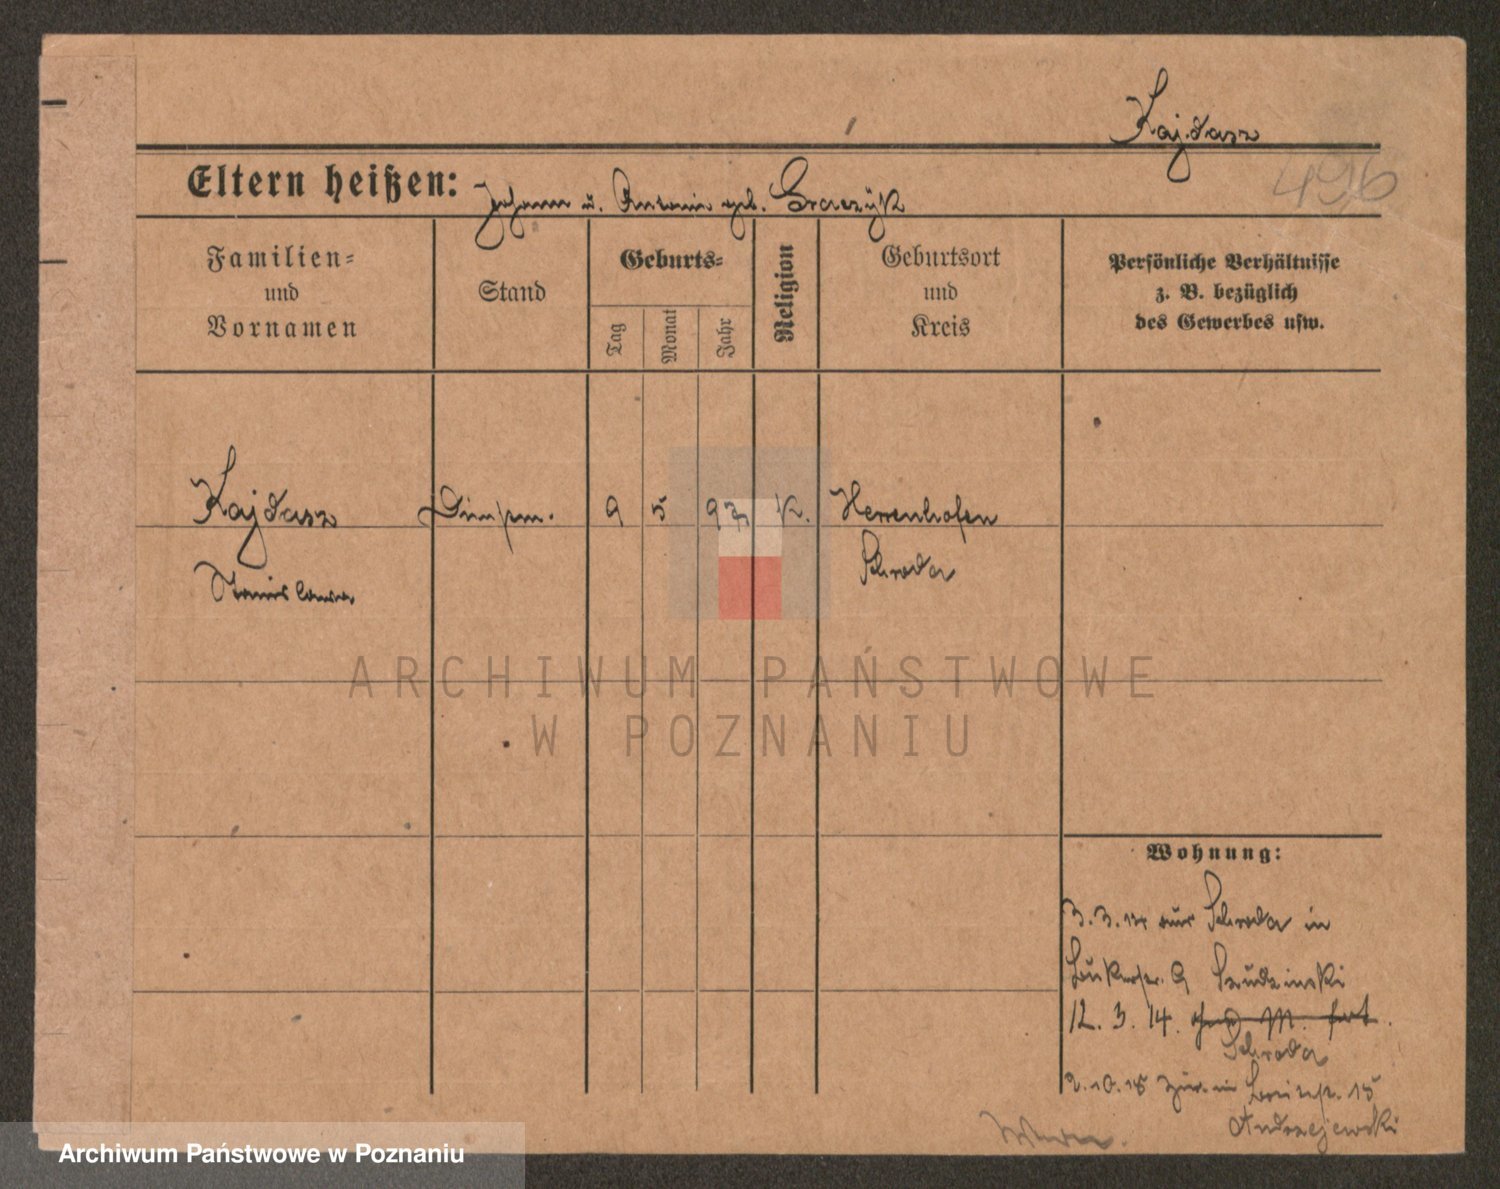 Kajdasz
496
Eltern heißen: Johann u. Antonie geb.
Familien-
und
Vornamen
Stand
Geburts-
Tag
Monat
Jahr
Religion
Geburtsort
und
Kreis
Persönliche Verhältnisse
z. B. bezüglich
des Gewerbes usw.
Kajdasz
Stanislawa
Dienstm.
9
5
93
K.
Herrenhofen
Schroda
ARCHIWUM PAŃSTWOWE
W POZNANIU
Wohnung:
3. 3. 14 aus Schroda in
9
12. 3. 14. ohne M. fort.
Schroda
2.10.15 zur. in 15
Andrzejewski
Archiwum Państwowe w Poznaniu